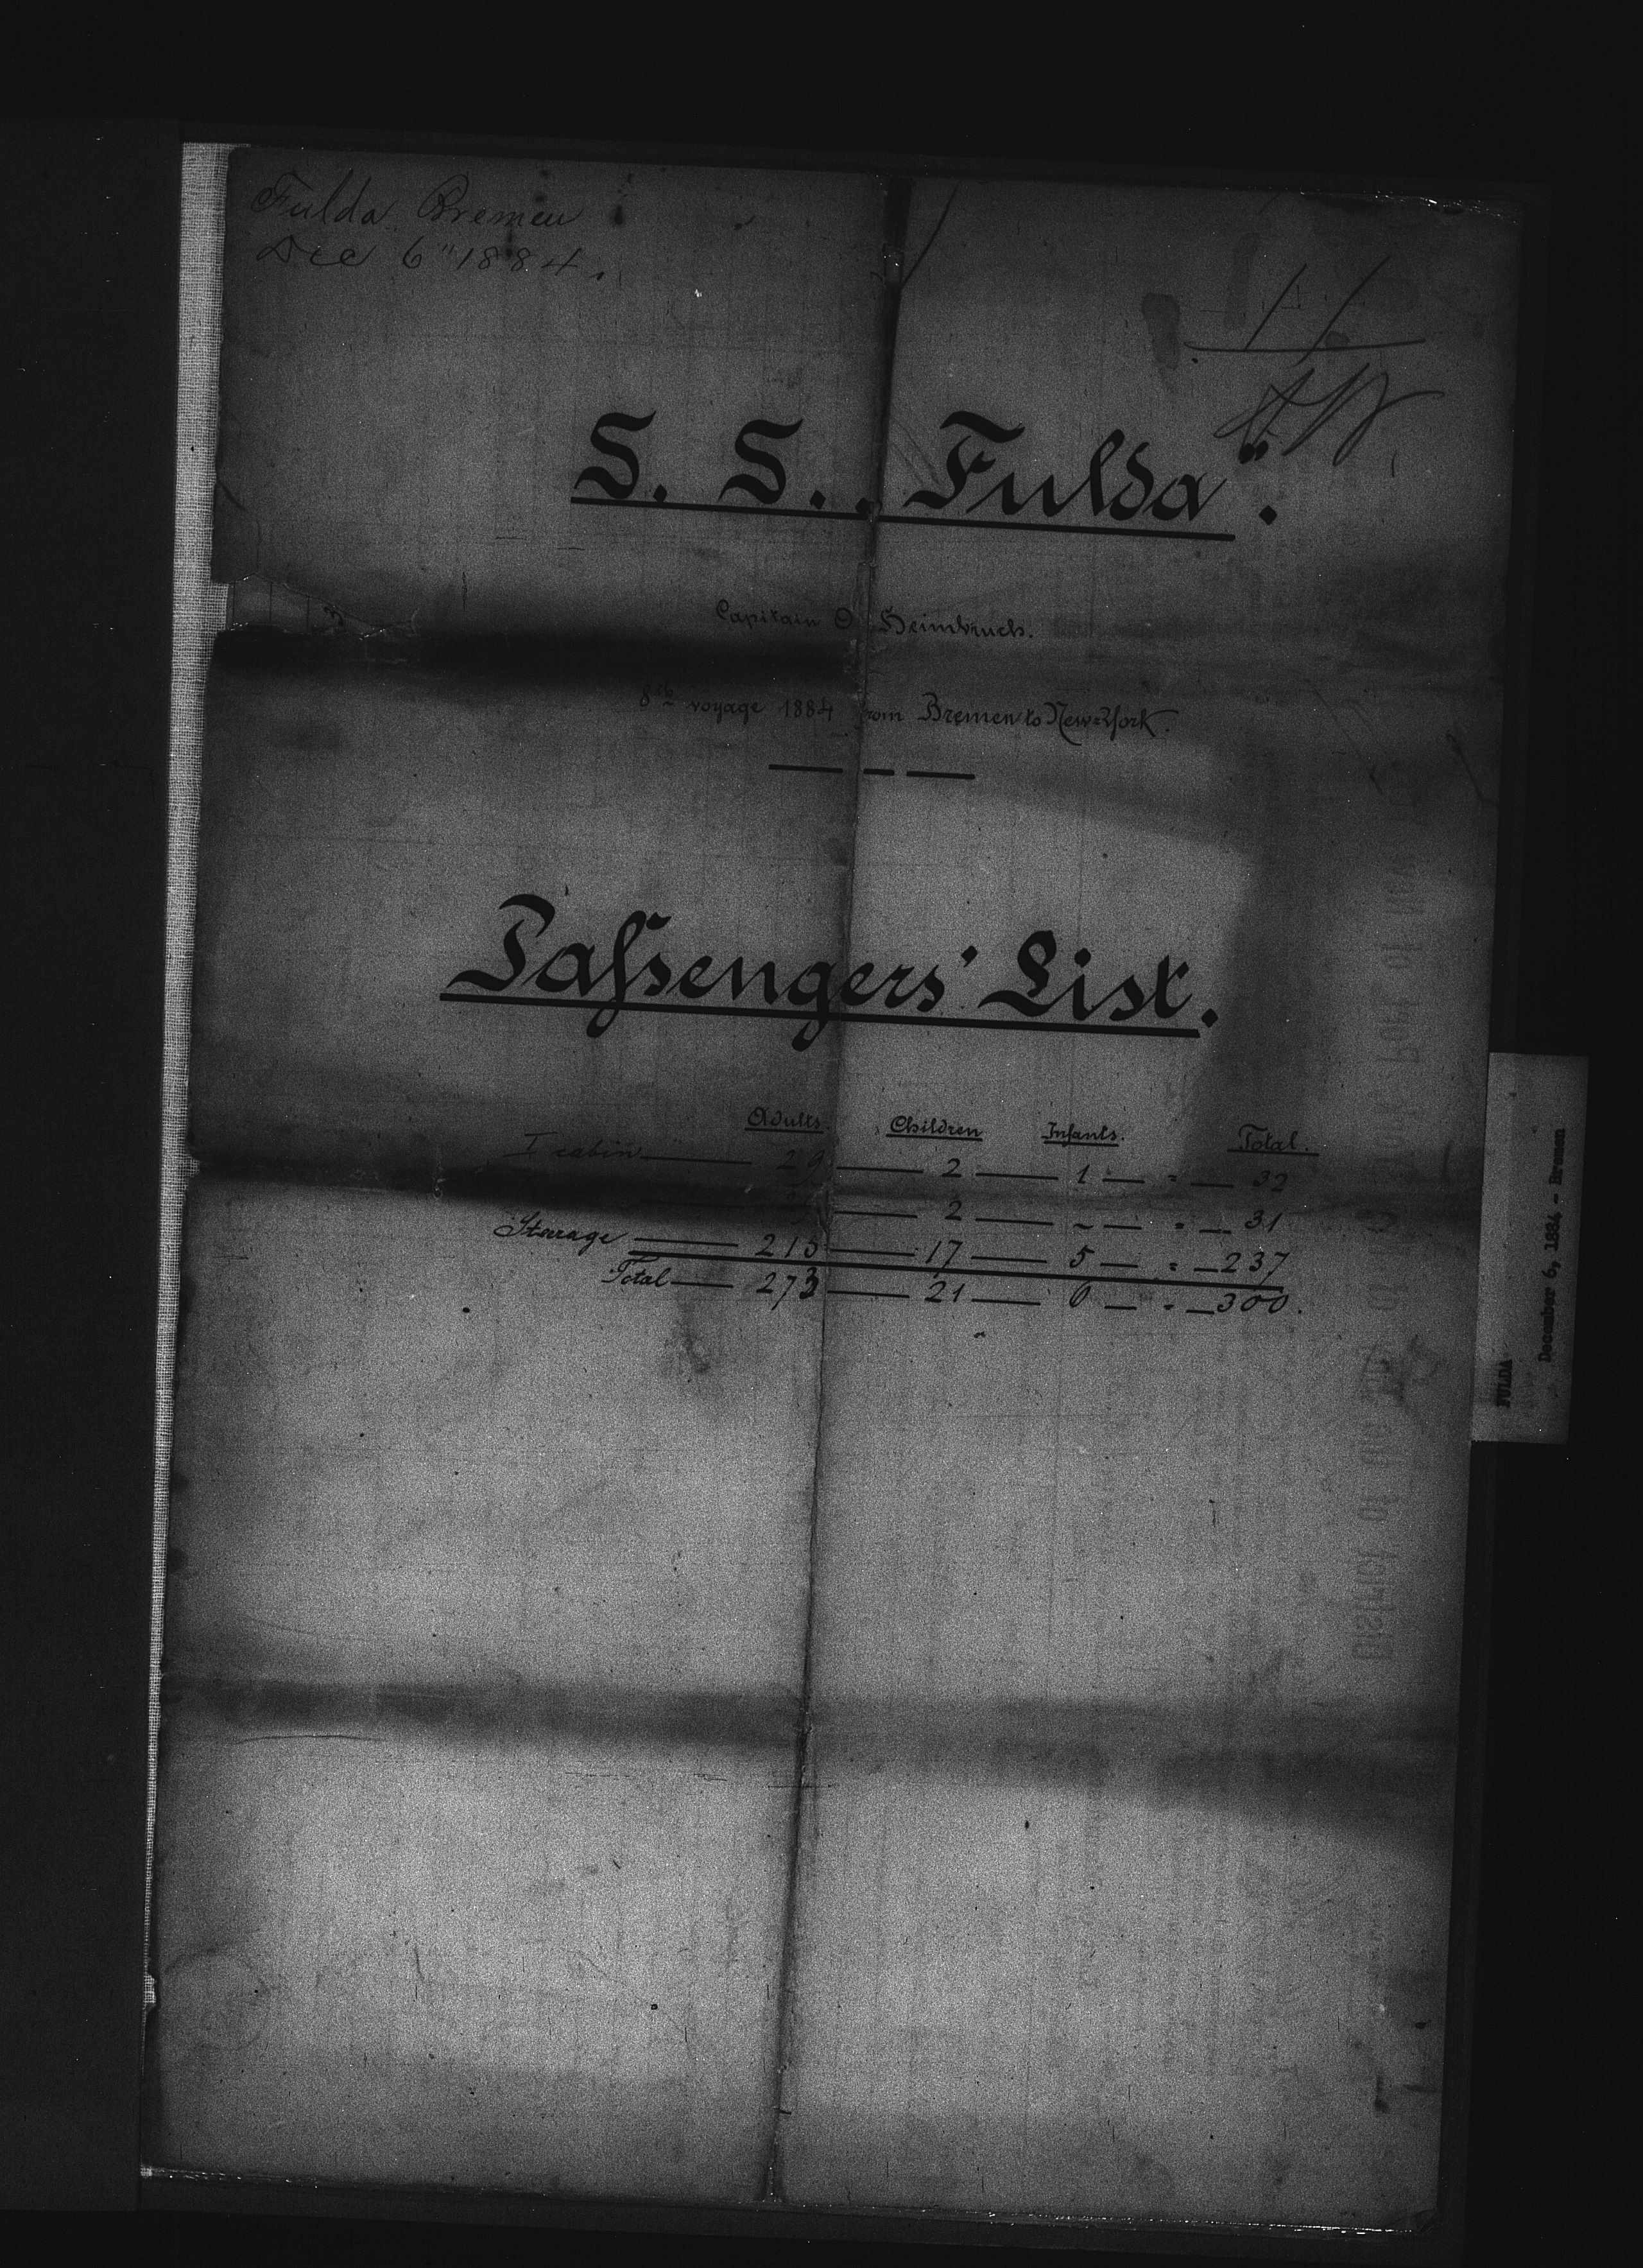 Fulda Bremen
Dec 6" 1884.
S. S. „Fulda“.
Capitain O Heimbruch.
8th voyage 1884 from Bremen to New=York.
Passengers' List.
Adults. Children Infants. Total.
I cabin 29 2 1 = 32
2 - = 31
Steerage 215 17 5 = 237
Total 273 21 6 = 300.
FULDA
December 6, 1884 - Bremen
District of the City of
Port of New